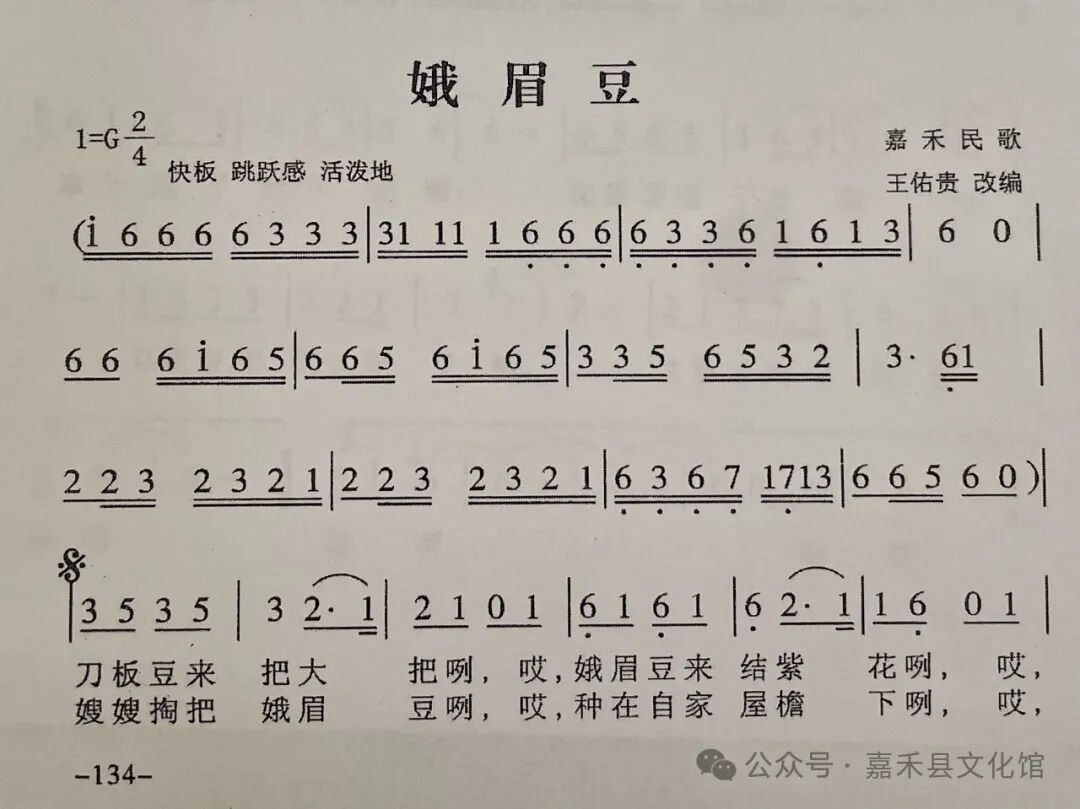 娥眉豆
1=G 2/4
快板 跳跃感 活泼地
嘉禾民歌
王佑贵 改编
(i̇ 6 6 6 6 3 3 3 | 31 11 1 6̣ 6̣ 6̣ | 6̣ 3̣ 3̣ 6̣ 1 6̣ 1 3 | 6 0 |
6 6 6 i̇ 6 5 | 6 6 5 6 i̇ 6 5 | 3 3 5 6 5 3 2 | 3· 6̣1 |
2 2 3 2 3 2 1 | 2 2 3 2 3 2 1 | 6̣ 3̣ 6̣ 7̣ 17̣13 | 6 6 5 6 0 ) |
3 5 3 5 | 3 2· 1 | 2 1 0 1 | 6̣ 1 6̣ 1 | 6̣ 2· 1 | 1 6̣ 0 1 |
刀板豆来 把大 把咧，哎，娥眉豆来 结紫 花咧，哎，
嫂嫂掏把 娥眉 豆咧，哎，种在自家 屋檐 下咧，哎，
-134-
公众号·嘉禾县文化馆